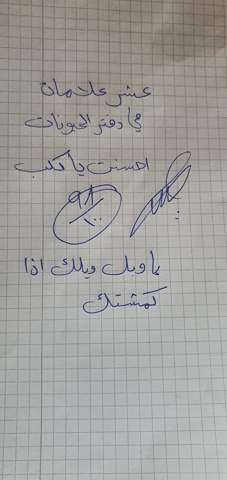 عشر علامات
في دفتر الحيونات
احسنت يا كلب
٩٨
١٠٠
يا ويل ويلك اذا
كمشتك